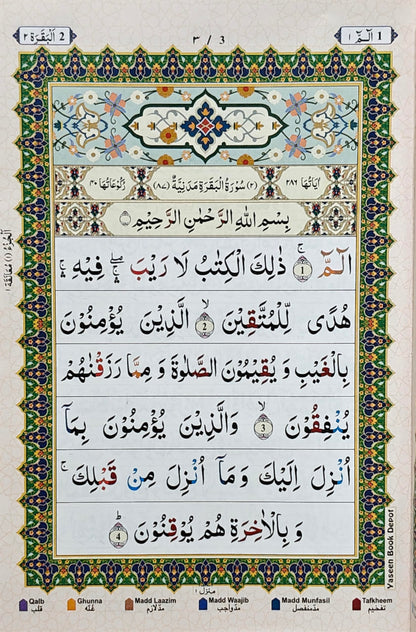 2 اَلْبَقَرَة ٢
٣ / 3
1 الٓمّٓ ١
اٰیَاتُهَا ٢٨٦
(٢) سُوْرَةُ الْبَقَرَةِ مَدَنِیَّةٌ (٨٧)
رُكُوْعَاتُهَا ٤٠
بِسْمِ اللّٰهِ الرَّحْمٰنِ الرَّحِیْمِ
الٓمّٓ ۚ 1 ذٰلِكَ الْكِتٰبُ لَا رَیْبَ ۛۖ فِیْهِ ۛۚ
هُدًی لِّلْمُتَّقِیْنَ ۙ 2 الَّذِیْنَ یُؤْمِنُوْنَ
بِالْغَیْبِ وَ یُقِیْمُوْنَ الصَّلٰوةَ وَ مِمَّا رَزَقْنٰهُمْ
یُنْفِقُوْنَ ۙ 3 وَالَّذِیْنَ یُؤْمِنُوْنَ بِمَاۤ
اُنْزِلَ اِلَیْكَ وَ مَاۤ اُنْزِلَ مِنْ قَبْلِكَ ۚ
وَ بِالْاٰخِرَةِ هُمْ یُوْقِنُوْنَ ؕ 4
اَلْجُزْءُ (١) مُعَانَقَة ١
Yaseen Book Depot
منزل ١
Qalb
قلب
Ghunna
غُنّه
Madd Laazim
مدّلازم
Madd Waajib
مدّواجب
Madd Munfasil
مدّمنفصل
Tafkheem
تفخیم